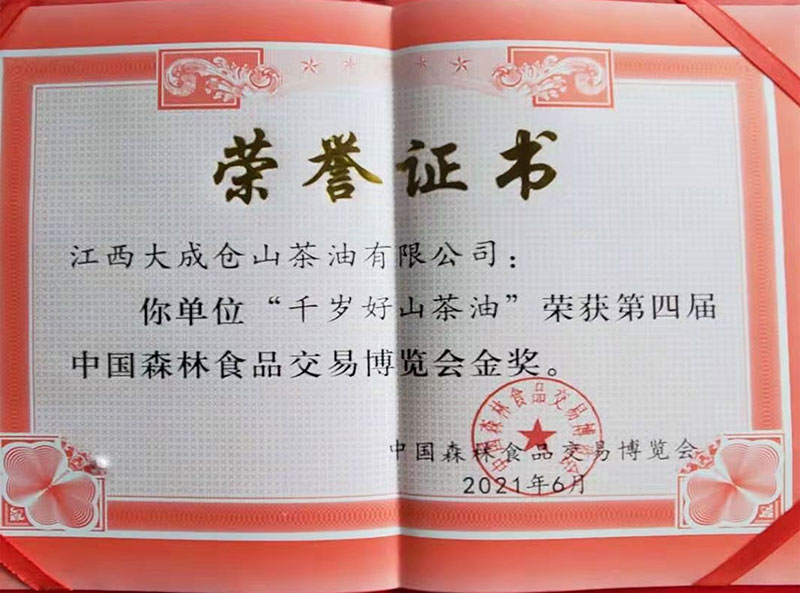 荣誉证书
江西大成仓山茶油有限公司：
你单位“千岁好山茶油”荣获第四届
中国森林食品交易博览会金奖。
中国森林食品交易博览会
中国森林食品交易博览会
2021年6月